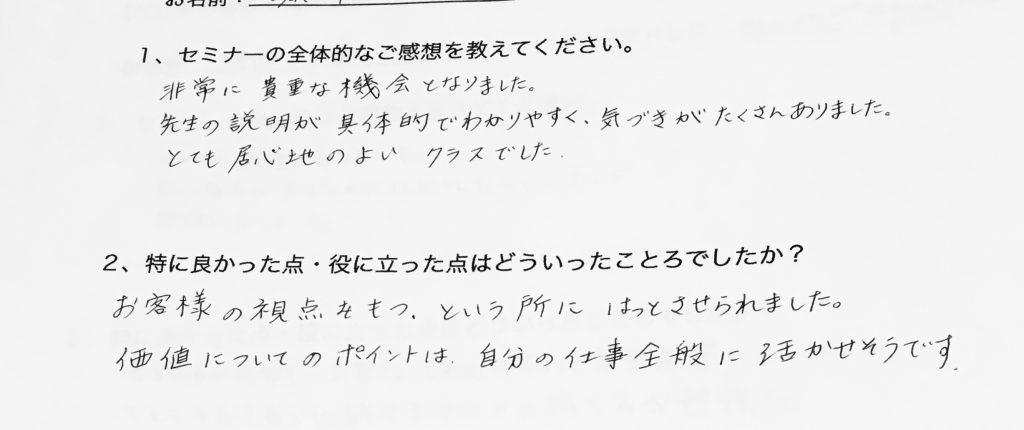 お名前：
1、セミナーの全体的なご感想を教えてください。
非常に貴重な機会となりました。
先生の説明が具体的でわかりやすく、気づきがたくさんありました。
とても居心地のよいクラスでした.
2、特に良かった点・役に立った点はどういったことろでしたか？
お客様の視点をもつ、という所にはっとさせられました。
価値についてのポイントは、自分の仕事全般に活かせそうです.